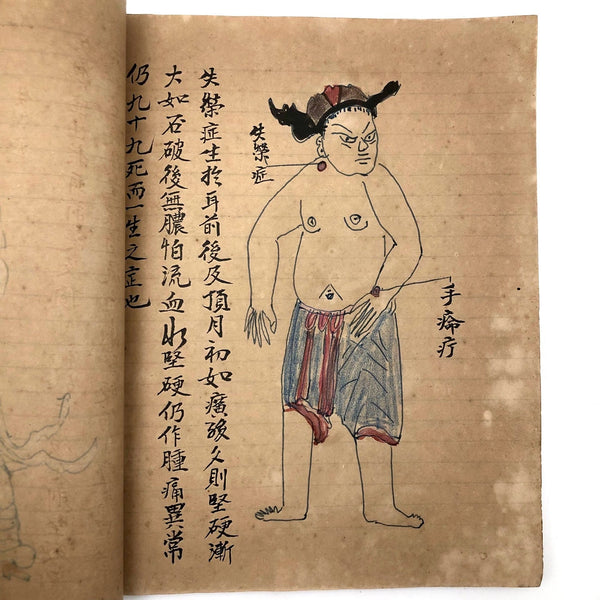 手疔
失榮症
失榮症生於耳前後及頂月初如久則堅硬漸
大如石破後無膿怕流血水堅硬仍作腫痛異常
仍九十九死而一生之症也